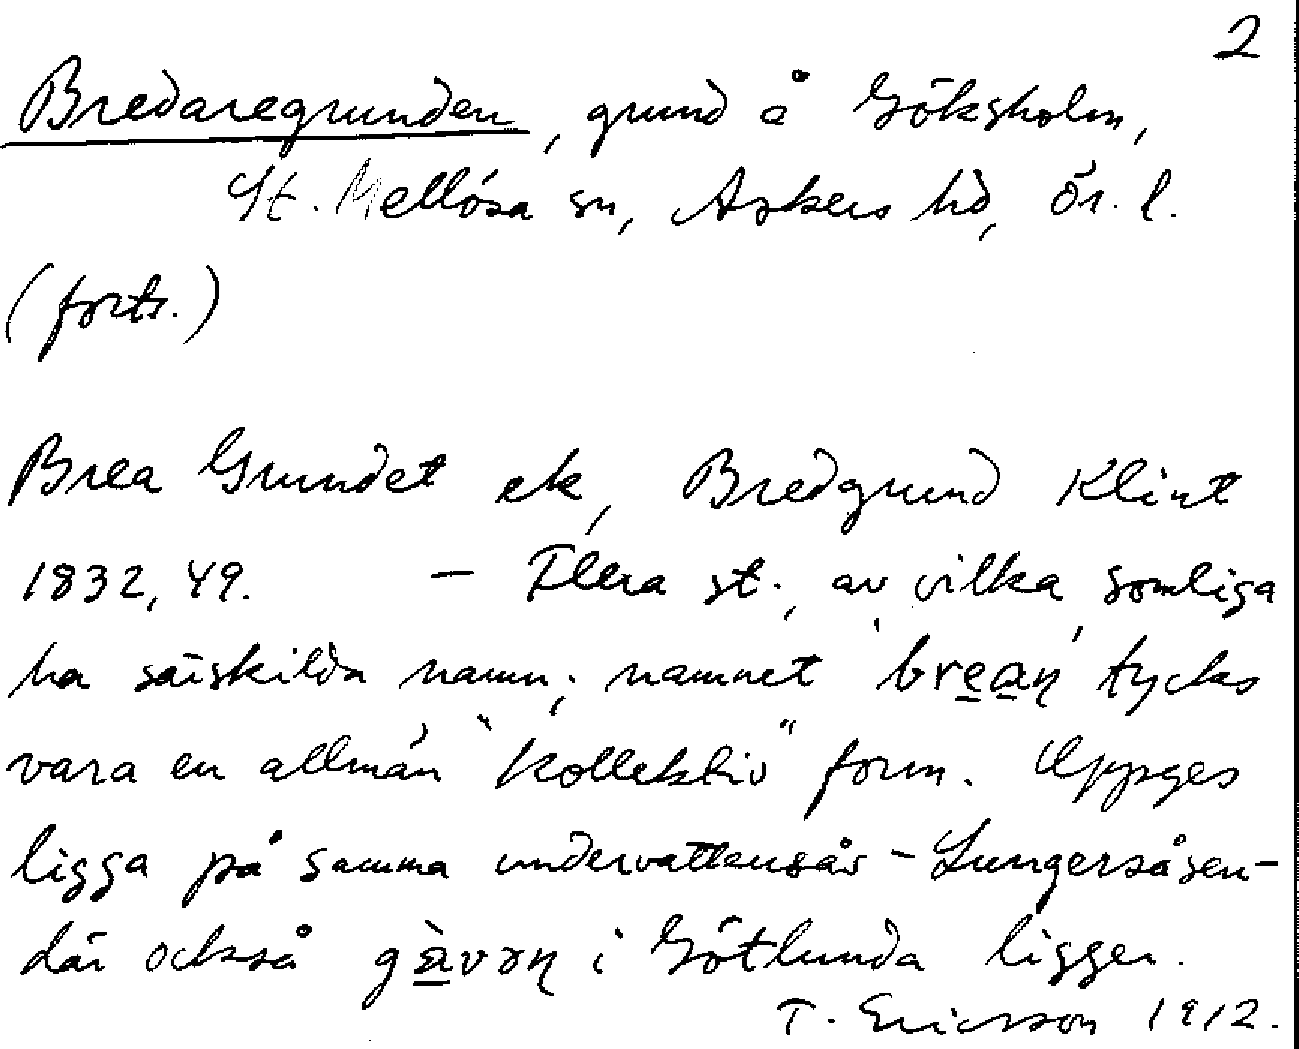 2
Bredaregrunden, grund å Göksholm,
St. Mellösa sn, Askers hd, Ör. l.
(forts.)
Brea Grundet ek, Bredgrund Klint
1832, 49. – Flera st., av vilka somliga
ha särskilda namn; namnet 'brean̥' tycks
vara en allmän "kollektiv" form. Uppges
ligga på samma undervattensås – Lungersåsen –
där också gàvən̥ i Götlunda ligger.
T. Ericsson 1912.